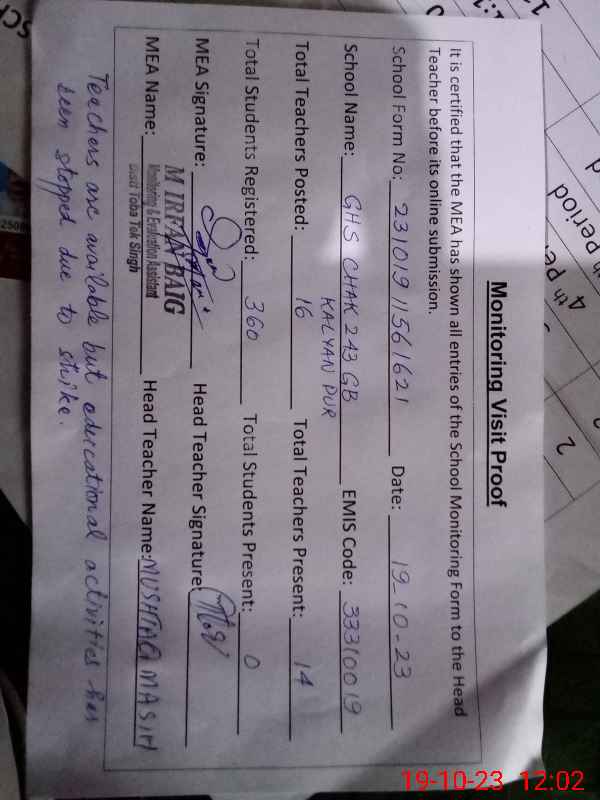 Monitoring Visit Proof
It is certified that the MEA has shown all entries of the School Monitoring Form to the Head
Teacher before its online submission.
School Form No: 231019 11561621 Date: 19-10-23
School Name: GHS CHAK 243 GB EMIS Code: 33310019
KALYAN PUR
Total Teachers Posted: 16 Total Teachers Present: 14
Total Students Registered: 360 Total Students Present: 0
MEA Signature: Head Teacher Signature:
M IRFAN BAIG
Monitoring & Evaluation Assistant
MEA Name: Head Teacher Name: MUSHTAQ MASIH
Distt Toba Tek Singh
Teachers are available but educational activities has
been stopped due to strike.
4th pe
th period
2
19-10-23 12:02